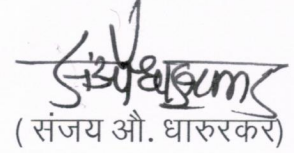 ( संजय औ. धारुरकर)